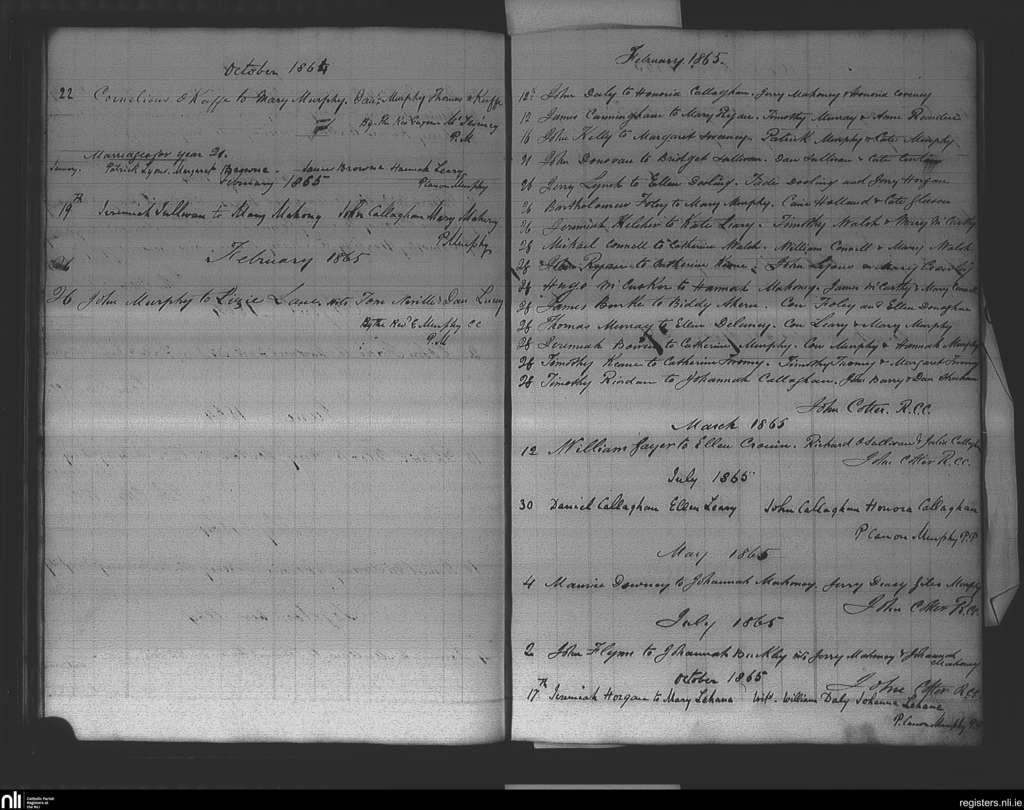 October 1864
22 Cornelious O Keffe to Mary Murphy. Dan. Murphy Thomas O Keffe
By the Rev Eugene Mc Swiney
P.M
Marriages for year
January. Patrick Lyons Margaret Browne James Browne Hannah Leary
February 1865 P Canon Murphy
19th Jeremiah Sullivan to Mary Mahony John Callaghan Mary Mahony
P. Murphy
February 1865
26 John Murphy to Lizzie Lane Tom Neville & Dan Lucey
By the Revd E Murphy CC
P.M
February 1865.
12 John Daly to Honoria Callaghan. Jerry Mahoney & Honoria
12 James Cunningham to Mary Regan. Timothy Murray & Anne
16 John Kelly to Margaret Sweeney. Patrick Murphy & Cate Murphy
21 John Donovan to Bridget Sullivan. Dan Sullivan & Cate
26 Jerry Lynch to Ellen Dooling. Dooling and Jerry Horgan
26 Bartholomew Foley to Mary Murphy. Holland & Cate Gleeson
26 Jeremiah Keleher to Kate Leary. Timothy Walsh & Mary McCarthy
28 Michael Connell to Catherine Walsh. William Connell & Mary Walsh
28 to Catherine Keane. John Lyons &
28 Hugo McCusker to Hannah Mahony. James McCarthy & Mary
28 James Bourke to Biddy Ahern. Con Foley and Ellen Donoghue
28 Thomas Murray to Ellen Delaney. Con Leary & Mary Murphy
28 Jeremiah to Catherine Murphy. Con Murphy & Hannah Murphy
28 Timothy Keane to Catherine Twomey. Timothy Twomey & Margaret Twomey
28 Timothy Riordan to Johannah Callaghan. John Barry & Dan
John Cotter. R.C.C.
March 1865
12 William to Ellen Cronin. Richard O Sullivan & Julia Callagh
John Cotter R.C.C.
July 1865
30 Daniel Callaghan Ellen Leary John Callaghan Honora Callaghan
P Canon Murphy P.P
May 1865
4 Maurice Downey to Johannah Mahoney. Jerry Murphy
John Cotter R.C.C.
July 1865
2 John Flynn to Johannah Buckley Jerry Mahoney & Johannah
Mahoney
John Cotter R.C.C.
October 1865
17th Jeremiah Horgan to Mary Lehane Witt. William Daly Johanna Lehane
P. Canon Murphy P.P
nli
Catholic Parish
Registers at
the NLI
registers.nli.ie